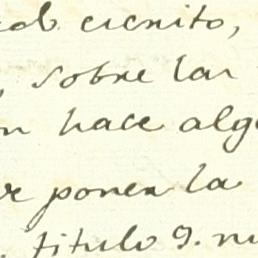 escrito,
, sobre las
hace alg
poner la
titulo 9. nu